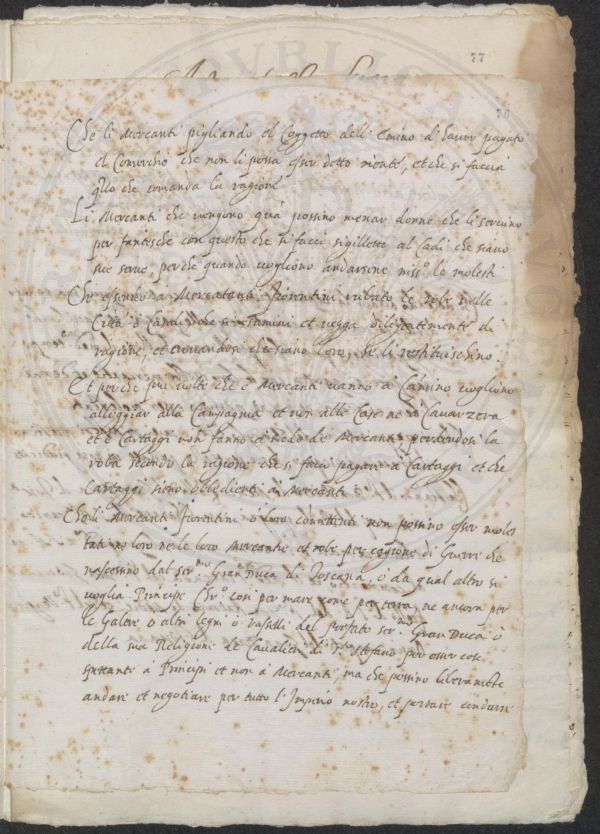 77
70
Che li Mercanti pigliando el Coggetto dell' Emino d'hauer pagato
el Comerchio che non li possa esser detto niente, et che si faccia
qllo che comanda la ragione
Li Mercanti che vengono quà possino menar donne che li seruino
per fantesche con questo che si facci sigilletto al Cadi che siano
sue serue, perche quando vogliono andarsene niss.o le molesti
Che essendo a Mercatanti Fiorentini rubato le robe nelle
Città ò Casali che si esamini et vegga diligentemente di
ragione, et trouandosi che siano loro, se li restituischino.
Et perche più volte che e Mercanti vanno à Camino vogliono
alloggiar alla Campagnia et non alle Case ne à Cauarzera
et e Cartaggi non fanno a modo de Mercanti perdendosi la
roba secondo la ragione che si facci pagare à Cartaggi et che
Cartaggi sieno obbedienti a Mercanti
Che li Mercanti Fiorentini ò loro comittenti non possino esser moles
tati ne loro ne le loro Mercantie et robe per cagione di Guerre che
nascessino dal ser.mo Gran Duca di Toscana, ò da qual altro si
voglia Principe Chr.o così per mare come per terra, ne ancora per
le Galere ò altri legni ò vasselli del prefato ser.mo Gran Duca ò
della sua Religione de Caualieri di s.to stefano per esser cose
spettanti à Principi et non à Mercanti, ma che possino liberamente
andare et negotiare per tutto l'Imperio nostro, et portare condurre